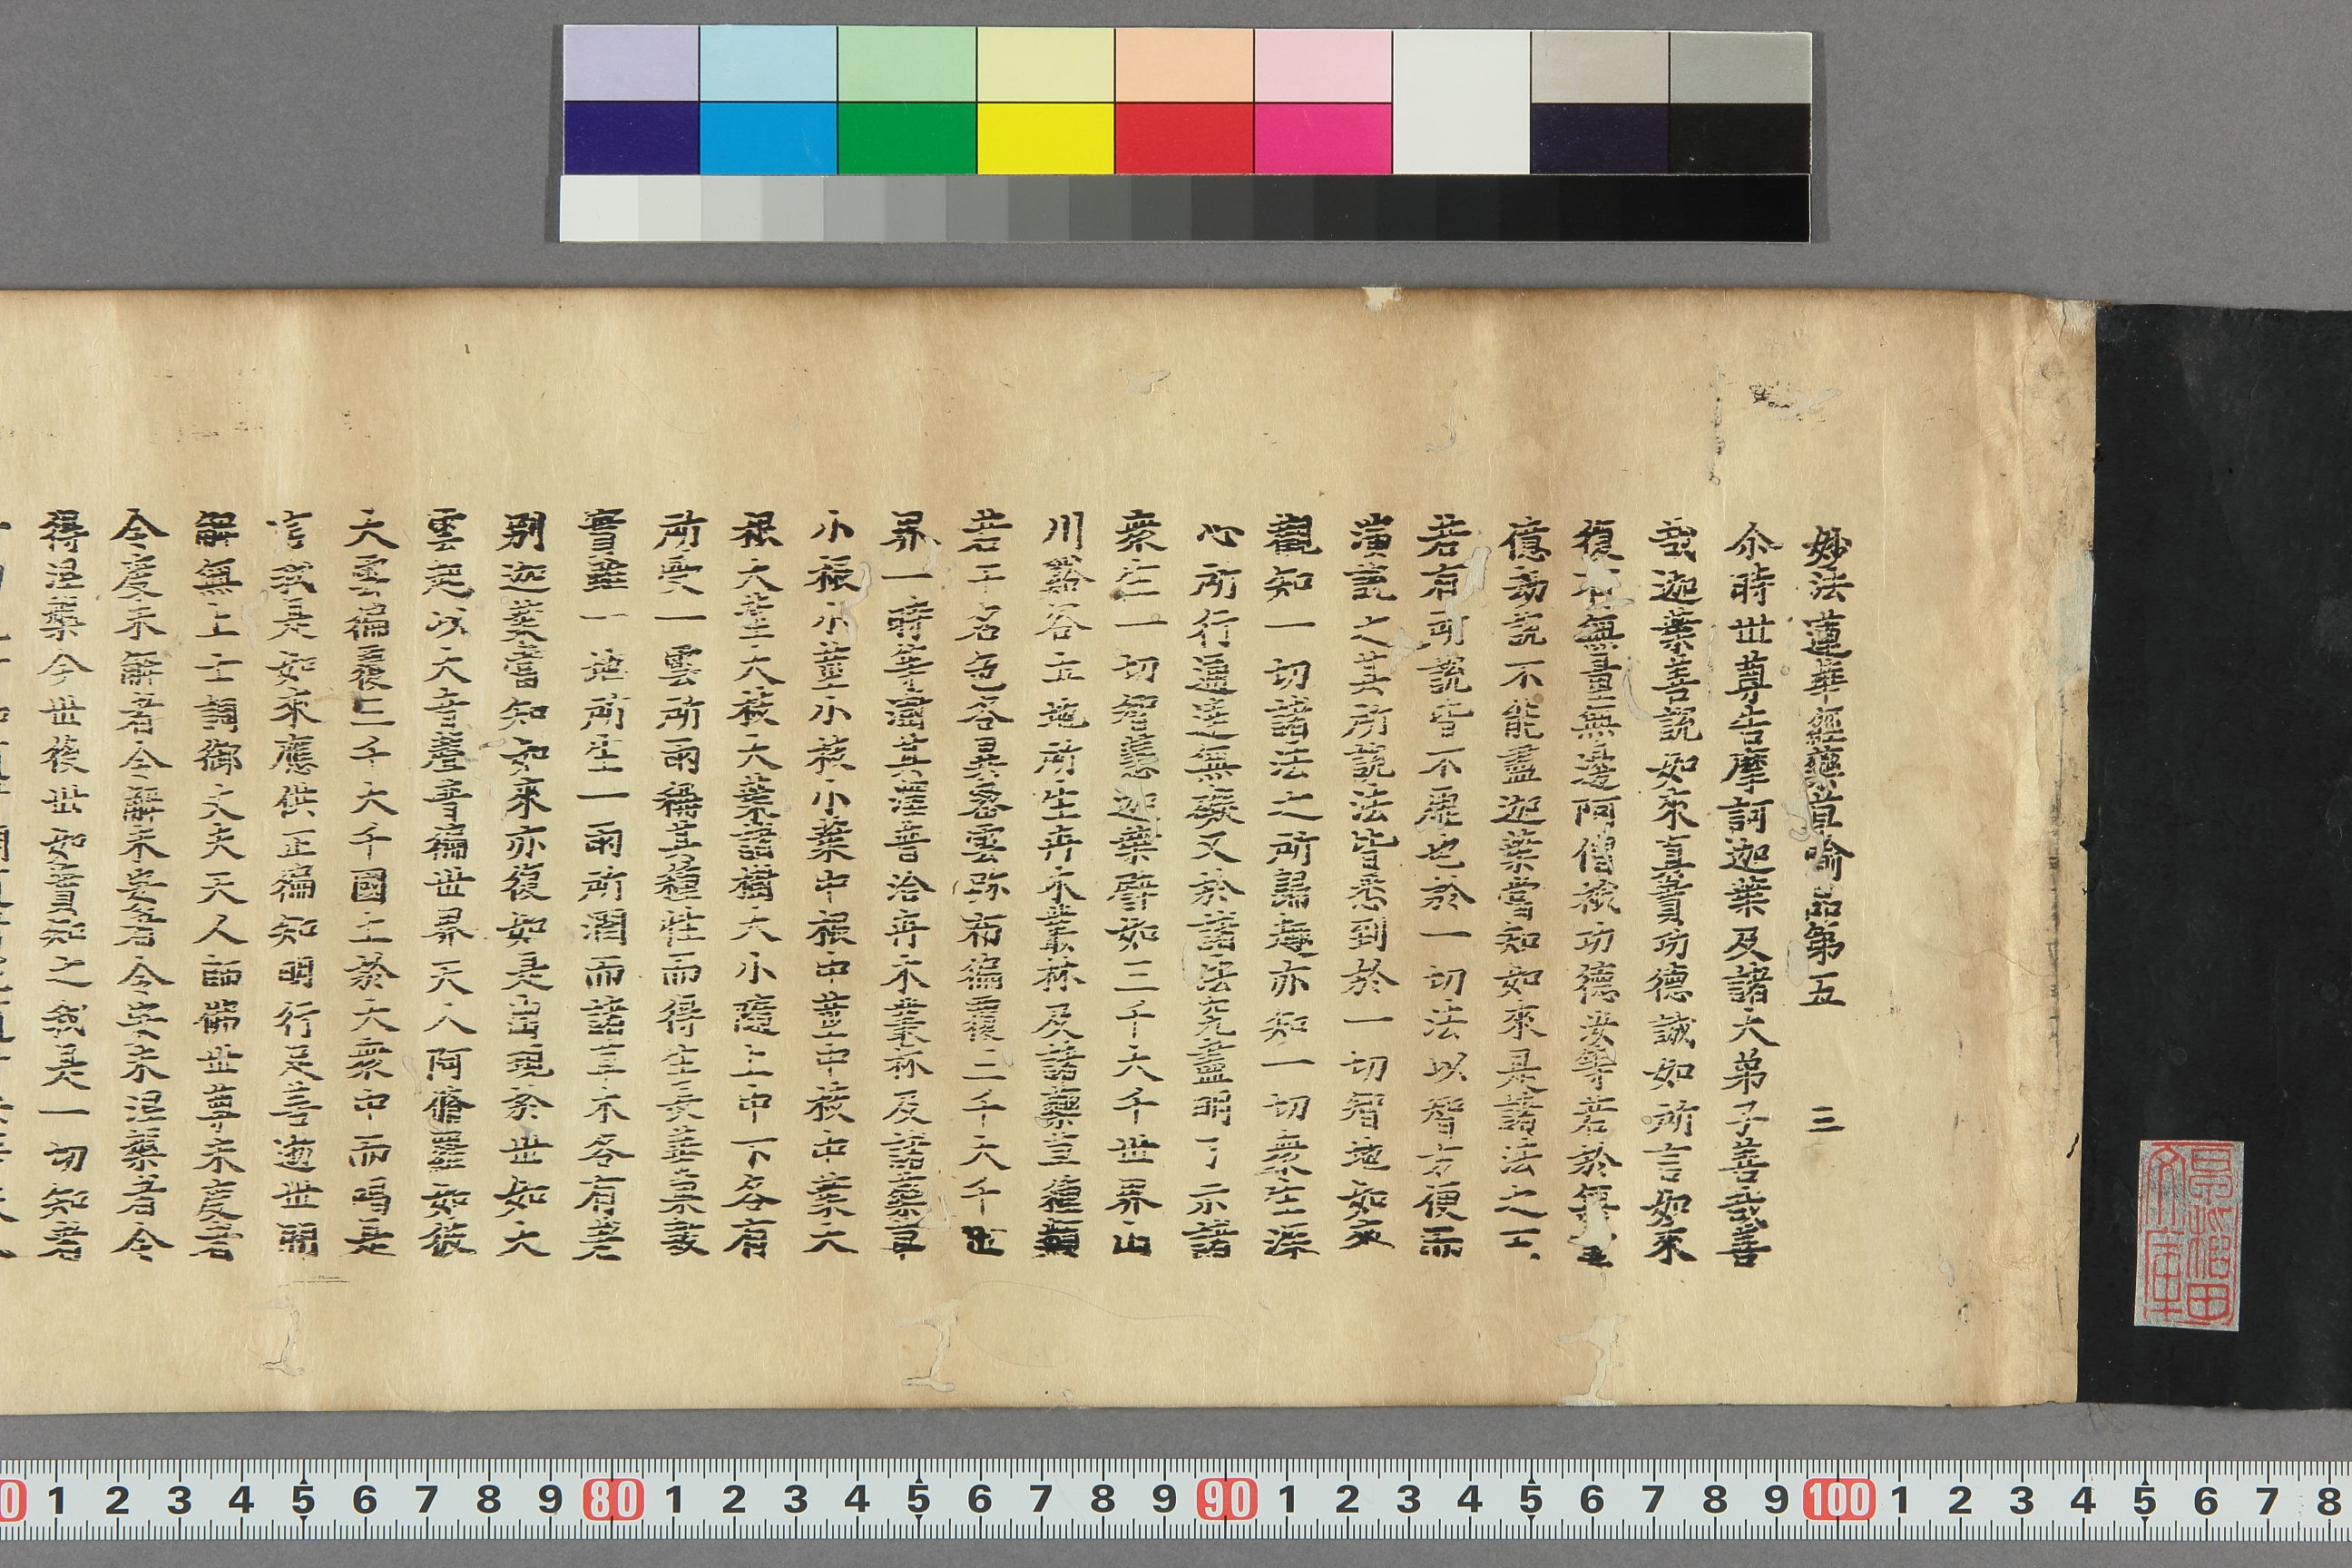 妙法蓮華經藥草喻品第五 三
尒時世尊告摩訶迦葉及諸大弟子善哉善
哉迦葉善說如來真實功德誠如所言如來
復有無量無邊阿僧祇功德汝等若於無量
億劫說不能盡迦葉當知如來是諸法之王
若有所說皆不虛也於一切法以智方便而
演說之其所說法皆悉到於一切智地如來
觀知一切諸法之所歸趣亦知一切眾生深
心所行通達無礙又於諸法究盡明了示諸
眾生一切智慧迦葉譬如三千大千世界山
川谿谷土地所生卉木叢林及諸藥草種類
若干名色各異密雲弥布徧覆三千大千世
界一時等澍其澤普洽卉木叢林及諸藥草
小根小莖小枝小葉中根中莖中枝中葉大
根大莖大枝大葉諸樹大小隨上中下各有
所受一雲所雨稱其種性而得生長華菓敷
實雖一地所生一雨所潤而諸草木各有差
別迦葉當知如來亦復如是出現於世如大
雲起以大音聲普徧世界天人阿脩羅如彼
大雲徧覆三千大千國土於大眾中而唱是
言我是如來應供正徧知明行足善逝世間
解無上士調御丈夫天人師佛世尊未度者
令度未解者令解未安者令安未涅槃者令
得涅槃今世後世如實知之我是一切知者
70 1 2 3 4 5 6 7 8 9 80 1 2 3 4 5 6 7 8 9 90 1 2 3 4 5 6 7 8 9 100 1 2 3 4 5 6 7 8